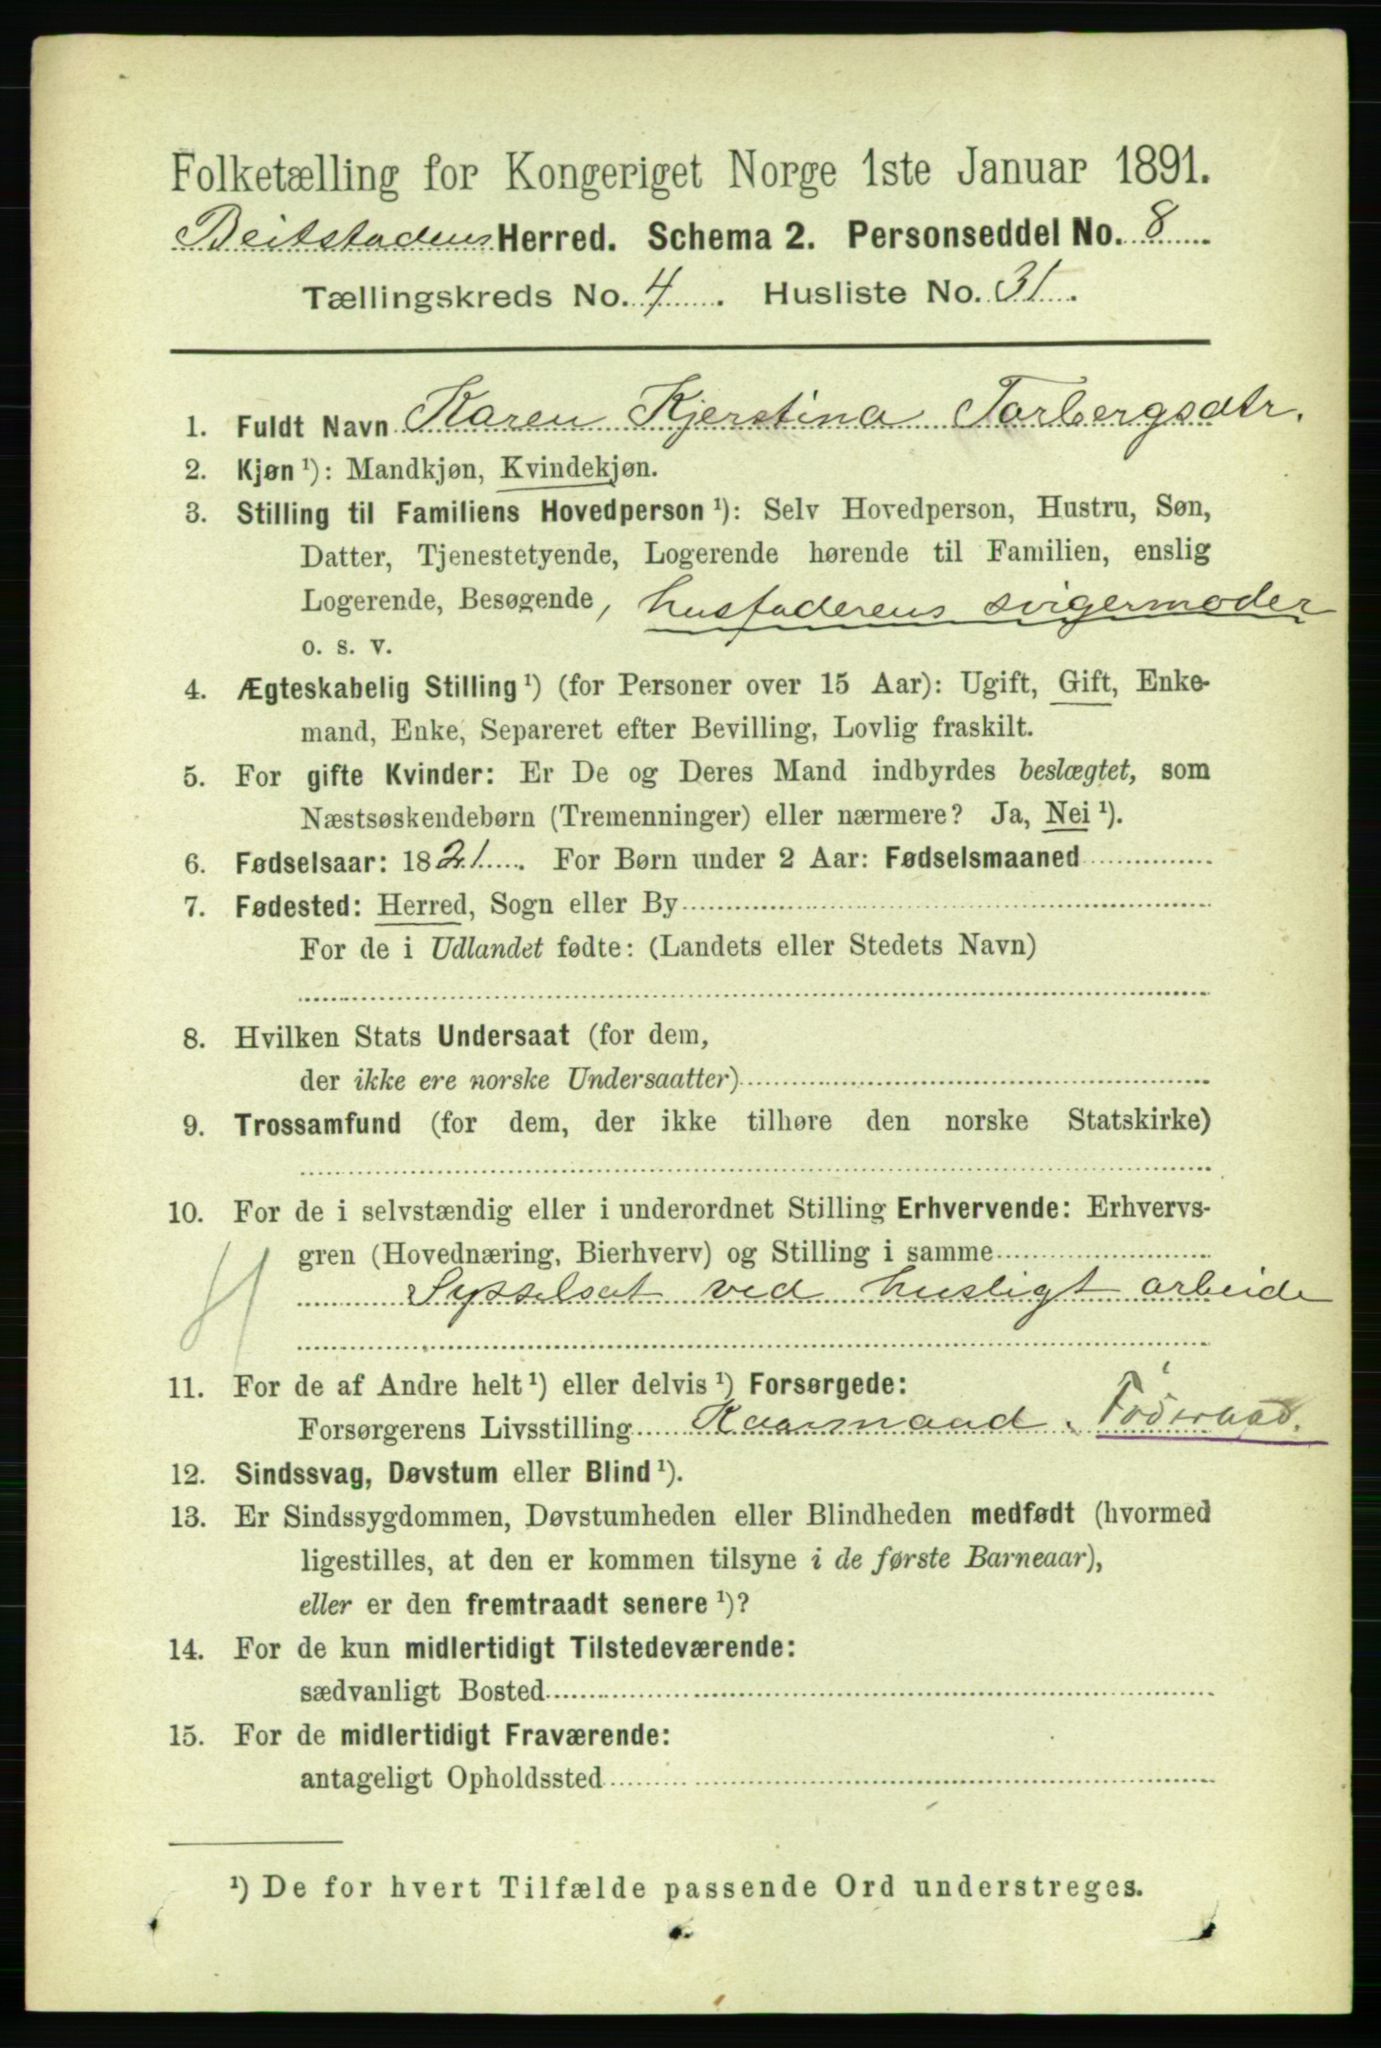 Folketælling for Kongeriget Norge 1ste Januar 1891.
Beitstadens Herred. Schema 2. Personseddel No. 8
Tællingskreds No. 4. Husliste No. 31.
1. Fuldt Navn Karen Kjerstina Torbergsdtr.
2. Kjøn ¹): Mandkjøn, Kvindekjøn.
3. Stilling til Familiens Hovedperson ¹): Selv Hovedperson, Hustru, Søn,
Datter, Tjenestetyende, Logerende hørende til Familien, enslig
Logerende, Besøgende, husfaderens svigermoder
o. s. v.
4. Ægteskabelig Stilling ¹) (for Personer over 15 Aar): Ugift, Gift, Enke-
mand, Enke, Separeret efter Bevilling, Lovlig fraskilt.
5. For gifte Kvinder: Er De og Deres Mand indbyrdes beslægtet, som
Næstsøskendebørn (Tremenninger) eller nærmere? Ja, Nei ¹).
6. Fødselsaar: 1821. For Børn under 2 Aar: Fødselsmaaned
7. Fødested: Herred, Sogn eller By
For de i Udlandet fødte: (Landets eller Stedets Navn)
8. Hvilken Stats Undersaat (for dem,
der ikke ere norske Undersaatter)
9. Trossamfund (for dem, der ikke tilhøre den norske Statskirke)
10. For de i selvstændig eller i underordnet Stilling Erhvervende: Erhvervs-
gren (Hovednæring, Bierhverv) og Stilling i samme
Sysselsat ved husligt arbeide
11. For de af Andre helt ¹) eller delvis ¹) Forsørgede:
Forsørgerens Livsstilling Kaarmand. Föderaad.
12. Sindssvag, Døvstum eller Blind ¹).
13. Er Sindssygdommen, Døvstumheden eller Blindheden medfødt (hvormed
ligestilles, at den er kommen tilsyne i de første Barneaar),
eller er den fremtraadt senere ¹)?
14. For de kun midlertidigt Tilstedeværende:
sædvanligt Bosted
15. For de midlertidigt Fraværende:
antageligt Opholdssted
¹) De for hvert Tilfælde passende Ord understreges.